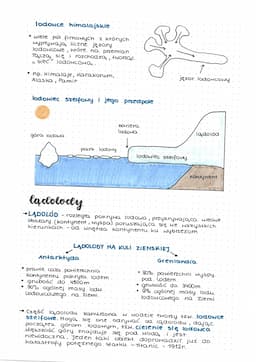 lodowce himalajskie
• wiele pól firnowych z których
wypływają liczne jęzory
lodowcowe, które na przemian
łączą się i rozchodzą, tworząc
„sieć" lodowcową
• np. Himalaje, Karakorum,
Alaska, Pamir
jęzor lodowcowy
lodowiec szelfowy i jego przekrój
bariera lodowa
lądolód
góra lodowa
pak lodowy
lodowiec szelfowy
kontynent
Lądolody
→ LĄDOLÓD - rozległa pokrywa lodowa, przykrywająca wielkie
obszary (kontynent, wyspa) poruszająca się we wszystkich
kierunkach - od wnętrza kontynentu ku wybrzeżom
LĄDOLODY NA KULI ZIEMSKIEJ
Antarktyda
Grenlandia
• prawie cała powierzchnia
kontynentu pokryta lodem
• grubość do 4800m
• 90% ogólnej masy lodu
lodowcowego na Ziemi
• 80% powierzchni wyspy
pod lodem
• grubość do 3400m
lodowcowego na Ziemi
→ Część lądolodu zanurzona w wodzie tworzy tzw. lodowce
szelfowe. Mogą się one odrywać od lądolodu, dając
początek górom lodowym, tzw. cielenie się lodowca.
Większość góry znajduje się pod wodą i jest
niewidoczna. Jeden taki obiekt doprowadził już do
katastrofy potężnego statku - Titanic - 1912r.